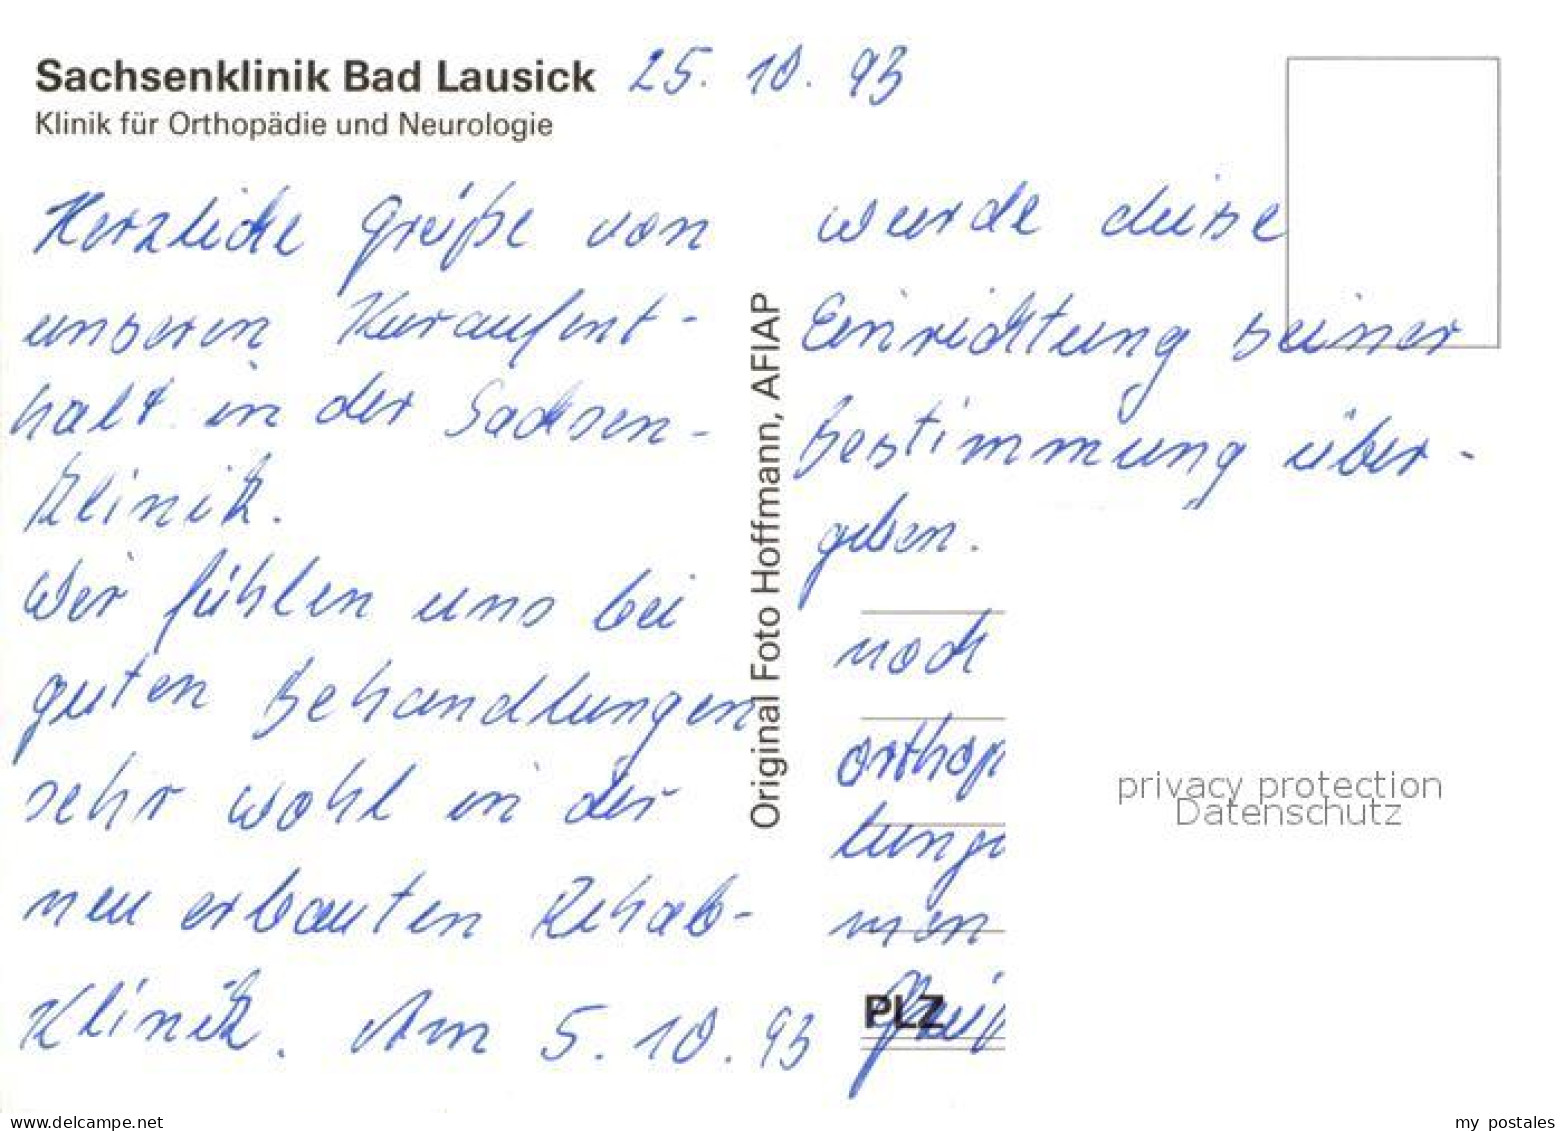 Sachsenklinik Bad Lausick 25. 10. 93
Klinik für Orthopädie und Neurologie
Herzliche Grüße von
unseren Kuraufent-
halt in der Sachsen-
klinik.
Wir fühlen uns bei
guten Behandlungen
sehr wohl in der
neu erbauten Rehab-
Klinik. Am 5. 10. 93
Original Foto Hoffmann, AFIAP
wurde diese
Einrichtung seiner
Bestimmung über-
geben.
noch
orthop
lunge
men
PLZ
privacy protection
Datenschutz
www.delcampe.net
my postales